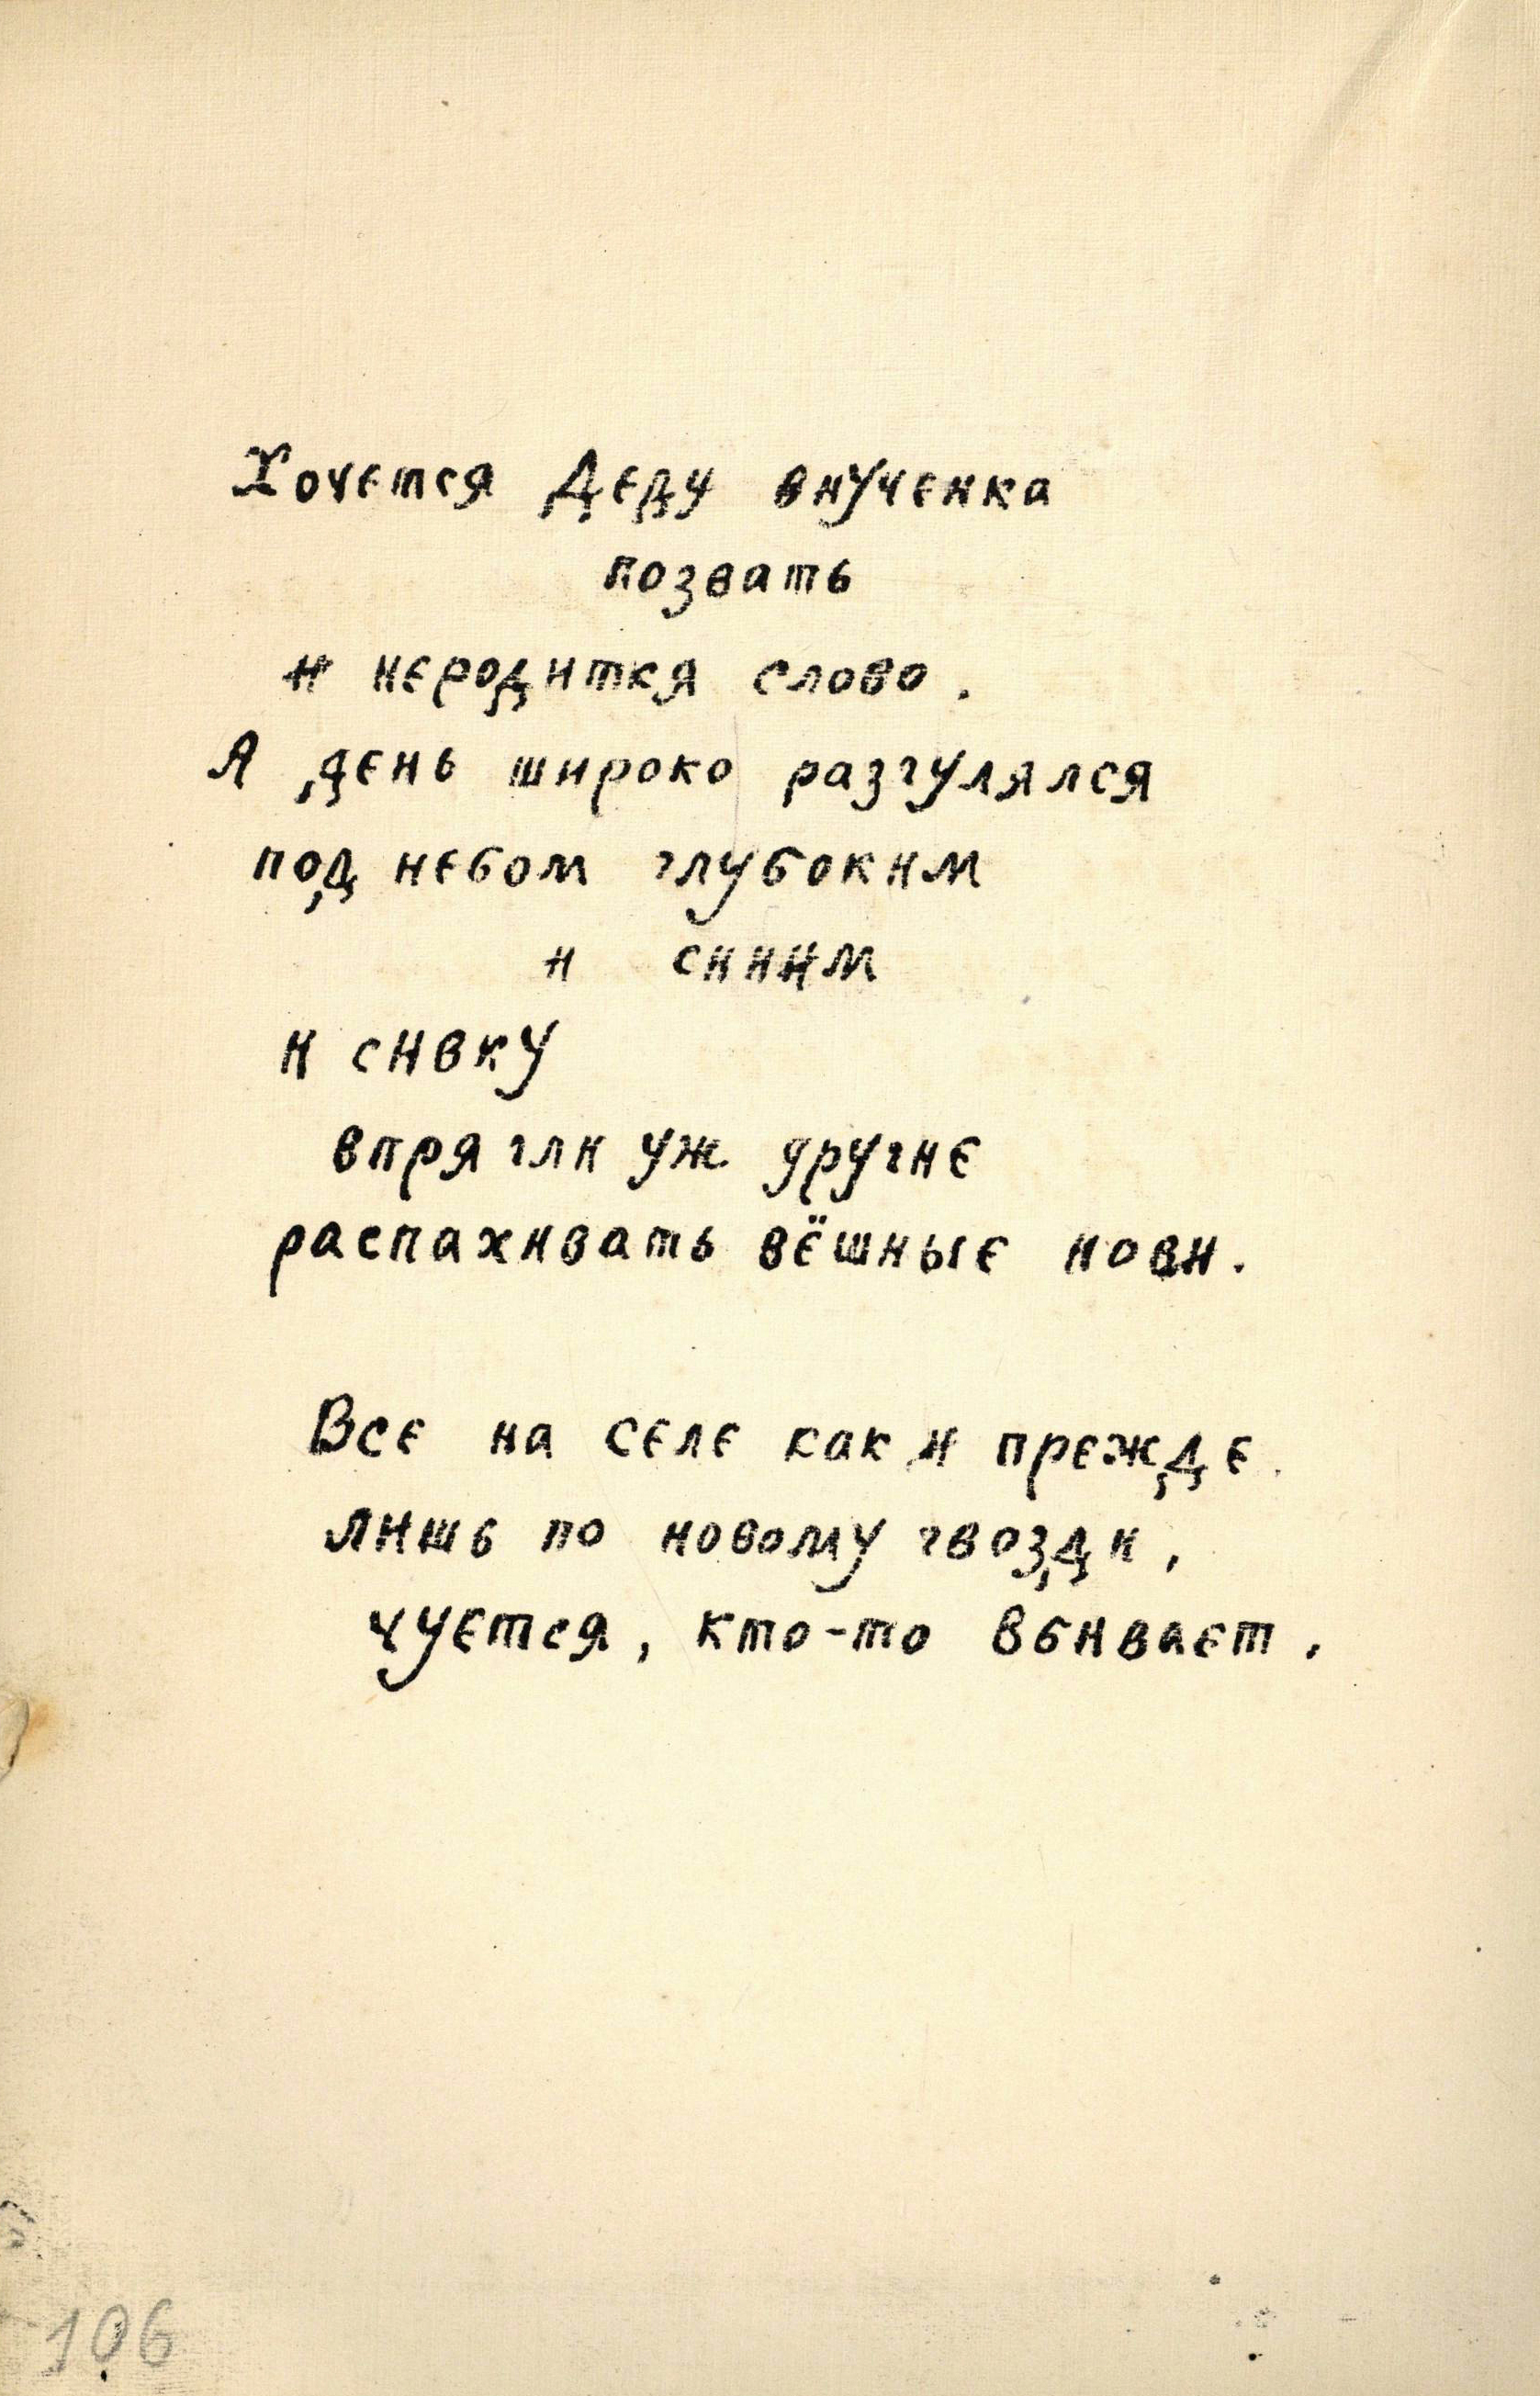 Хочется Деду внученка
позвать
и неродится слово.
А день широко разгулялся
под небом глубоким
и синим
и сивку
впрягли уж другие
распахивать вёшные нови.
Все на селе как и прежде.
лишь по новому гвозди,
чуется, кто-то вбивает.
106